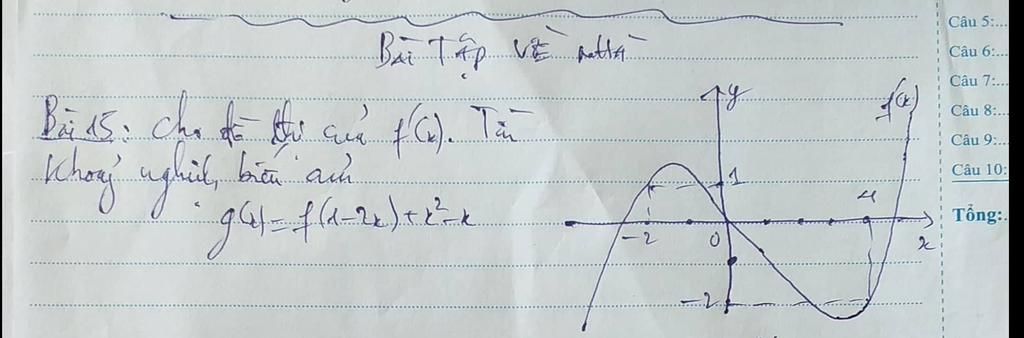 Bài Tập VỀ nhà
Bài 15: Cho đồ thị của f'(x). Tìm
khoảng nghịch biến của
g(x) = f(1-2x) + x² - x
y
f'(x)
1
4
-2
0
x
-2
Câu 5:...
Câu 6:...
Câu 7:...
Câu 8:...
Câu 9:...
Câu 10:
Tổng:.